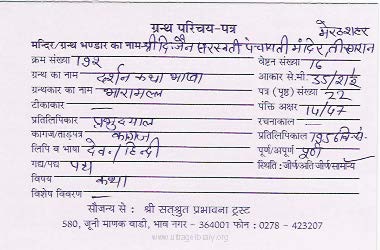 ग्रन्थ परिचय-पत्र
मेरठ शहर
मन्दिर/ग्रन्थ भण्डार का नाम- श्री दि. जैन सरस्वती पंचायती मंदिर, तीरगरान
क्रम संख्या १७२ वेष्टन संख्या 16
ग्रन्थ का नाम दर्शन कथा भाषा आकार से.मी.
ग्रन्थकार का नाम भारामल्ल पत्र (पृष्ठ) संख्या 22
टीकाकार — पंक्ति अक्षर 14/47
प्रतिलिपिकार प्रभुदयाल रचनाकाल —
कागज/ताड़पत्र कागज प्रतिलिपिकाल
लिपि व भाषा देव./हिन्दी पूर्ण/अपूर्ण पूर्ण
गद्य/पद्य पद्य स्थिति : जीर्ण/अति जीर्ण/सामान्य
विषय कथा
विशेष विवरण —
सौजन्य से : श्री सतश्रुत प्रभावना ट्रस्ट
580, जूनी माणक वाडी, भाव नगर - 364001 फोन : 0278 - 423207